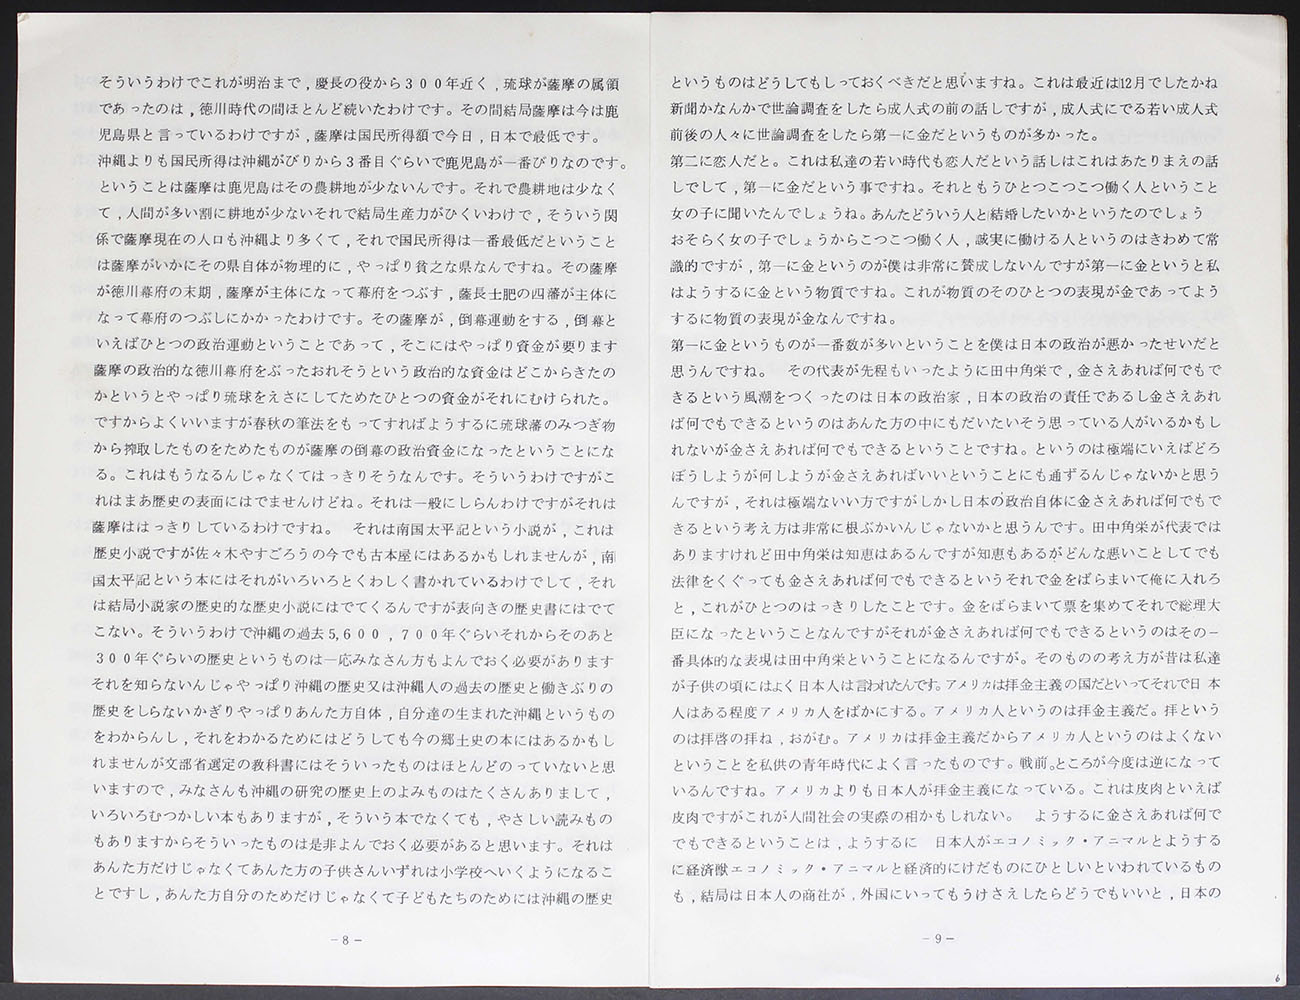 そういうわけでこれが明治まで,慶長の役から300年近く,琉球が薩摩の属領
であったのは,徳川時代の間ほとんど続いたわけです。その間結局薩摩は今は鹿
児島県と言っているわけですが,薩摩は国民所得額で今日,日本で最低です。
沖縄よりも国民所得は沖縄がびりから3番目ぐらいで鹿児島が一番びりなのです。
ということは薩摩は鹿児島はその農耕地が少ないんです。それで農耕地は少なく
て,人間が多い割に耕地が少ないそれで結局生産力がひくいわけで,そういう関
係で薩摩現在の人口も沖縄より多くて,それで国民所得は一番最低だということ
は薩摩がいかにその県自体が物理的に,やっぱり貧乏な県なんですね。その薩摩
が徳川幕府の末期,薩摩が主体になって幕府をつぶす,薩長士肥の四藩が主体に
なって幕府のつぶしにかかったわけです。その薩摩が,倒幕運動をする,倒幕と
いえばひとつの政治運動ということであって,そこにはやっぱり資金が要ります
薩摩の政治的な徳川幕府をぶったおれそうという政治的な資金はどこからきたの
かというとやっぱり琉球をえさにしてためたひとつの資金がそれにむけられた。
ですからよくいいますが春秋の筆法をもってすればようするに琉球藩のみつぎ物
から搾取したものをためたものが薩摩の倒幕の政治資金になったということにな
る。これはもうなるんじゃなくてはっきりそうなんです。そういうわけですがこ
れはまあ歴史の表面にはでませんけどね。それは一般にしらんわけですがそれは
薩摩ははっきりしているわけですね。 それは南国太平記という小説が,これは
歴史小説ですが佐々木やすごろうの今でも古本屋にはあるかもしれませんが,南
国太平記という本にはそれがいろいろとくわしく書かれているわけでして,それ
は結局小説家の歴史的な歴史小説にはでてくるんですが表向きの歴史書にはでて
こない。そういうわけで沖縄の過去5,600,700年ぐらいそれからそのあと
300年ぐらいの歴史というものは一応みなさん方もよんでおく必要があります
それを知らないんじゃやっぱり沖縄の歴史又は沖縄人の過去の歴史と働きぶりの
歴史をしらないかぎりやっぱりあんた方自体,自分達の生まれた沖縄というもの
をわからんし,それをわかるためにはどうしても今の郷土史の本にはあるかもし
れませんが文部省選定の教科書にはそういったものはほとんどのっていないと思
いますので,みなさんも沖縄の研究の歴史上のよみものはたくさんありまして,
いろいろむつかしい本もありますが,そういう本でなくても,やさしい読みもの
もありますからそういったものは是非よんでおく必要があると思います。それは
あんた方だけじゃなくてあんた方の子供さんいずれは小学校へいくようになるこ
とですし,あんた方自分のためだけじゃなくて子どもたちのためには沖縄の歴史
－8－
というものはどうしてもしっておくべきだと思いますね。これは最近は12月でしたかね
新聞かなんかで世論調査をしたら成人式の前の話しですが,成人式にでる若い成人式
前後の人々に世論調査をしたら第一に金だというものが多かった。
第二に恋人だと。これは私達の若い時代も恋人だという話しはこれはあたりまえの話
しでして,第一に金だという事ですね。それともうひとつこつこつ働く人ということ
女の子に聞いたんでしょうね。あんたどういう人と結婚したいかというたのでしょう
おそらく女の子でしょうからこつこつ働く人,誠実に働ける人というのはきわめて常
識的ですが,第一に金というのが僕は非常に賛成しないんですが第一に金というと私
はようするに金という物質ですね。これが物質のそのひとつの表現が金であってよう
するに物質の表現が金なんですね。
第一に金というものが一番数が多いということを僕は日本の政治が悪かったせいだと
思うんですね。 その代表が先程もいったように田中角栄で,金さえあれば何でもで
きるという風潮をつくったのは日本の政治家,日本の政治の責任であるし金さえあれ
ば何でもできるというのはあんた方の中にもだいたいそう思っている人がいるかもし
れないが金さえあれば何でもできるということですね。というのは極端にいえばどろ
ぼうしようが何しようが金さえあればいいということにも通ずるんじゃないかと思う
んですが,それは極端ないい方ですがしかし日本の政治自体に金さえあれば何でもで
きるという考え方は非常に根ぶかいんじゃないかと思うんです。田中角栄が代表では
ありますけれど田中角栄は知恵はあるんですが知恵もあるがどんな悪いことしてでも
法律をくぐっても金さえあれば何でもできるというそれで金をばらまいて俺に入れろ
と,これがひとつのはっきりしたことです。金をばらまいて票を集めてそれで総理大
臣になったということなんですがそれが金さえあれば何でもできるというのはその一
番具体的な表現は田中角栄ということになるんですが。そのものの考え方が昔は私達
が子供の頃にはよく日本人は言われたんです。アメリカは拝金主義の国だといってそれで日本
人はある程度アメリカ人をばかにする。アメリカ人というのは拝金主義だ。拝という
のは拝啓の拝ね,おがむ。アメリカは拝金主義だからアメリカ人というのはよくない
ということを私供の青年時代によく言ったものです。戦前。ところが今度は逆になって
いるんですね。アメリカよりも日本人が拝金主義になっている。これは皮肉といえば
皮肉ですがこれが人間社会の実際の相かもしれない。 ようするに金さえあれば何で
でもできるということは,ようするに 日本人がエコノミック・アニマルとようする
に経済獣エコノミック・アニマルと経済的にけだものにひとしいといわれているもの
も,結局は日本人の商社が,外国にいってもうけさえしたらどうでもいいと,日本の
－9－
6